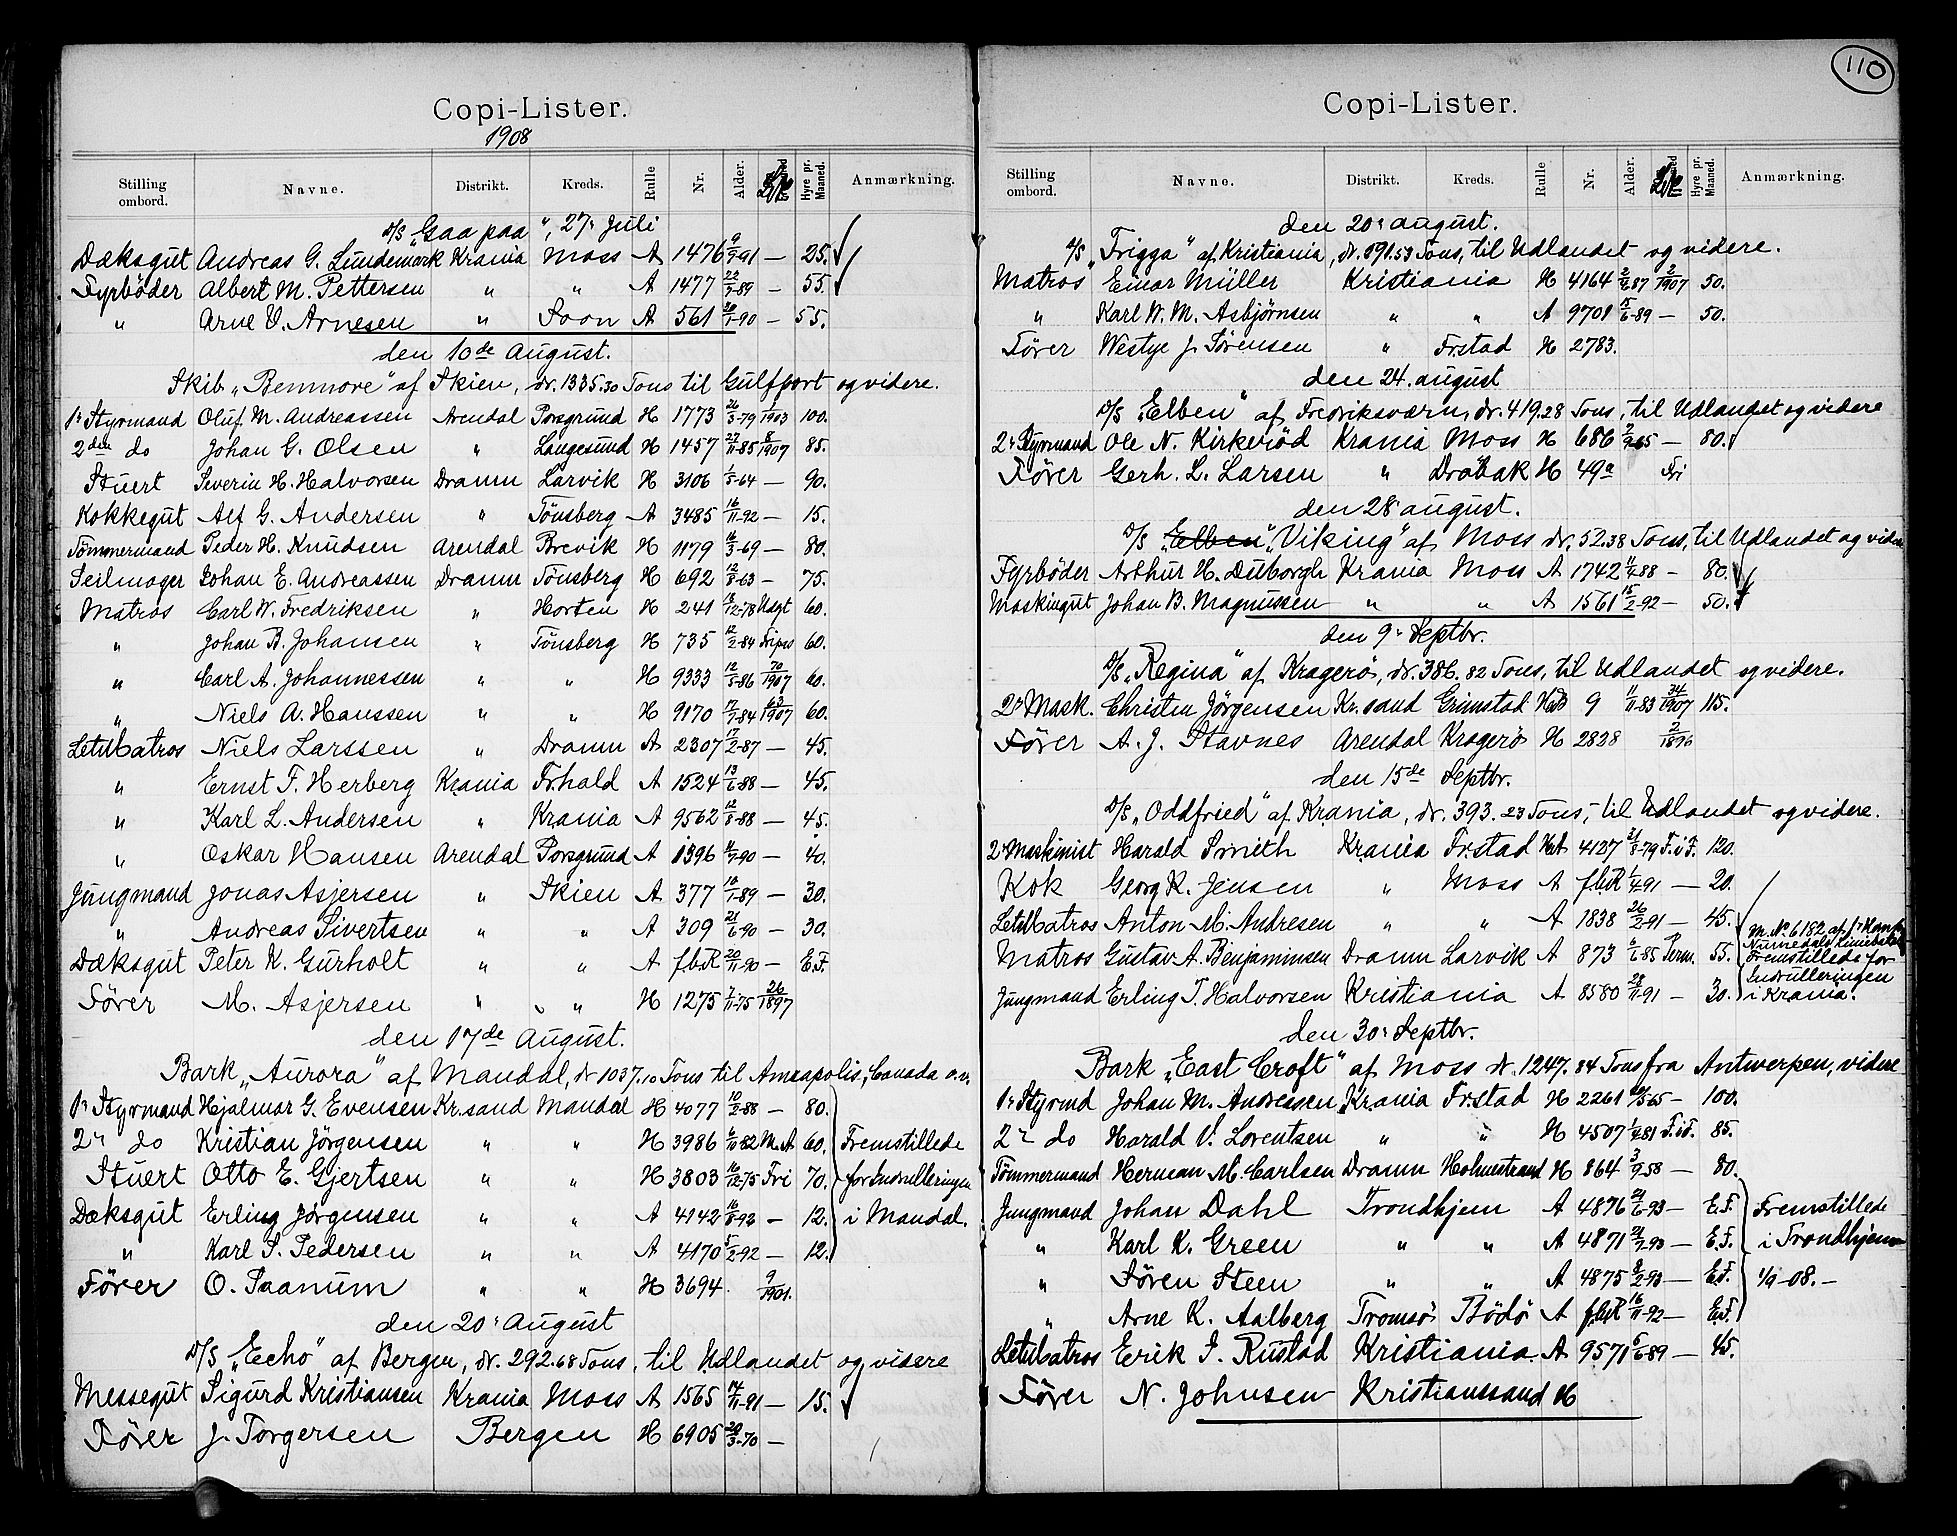 Copi-Lister.
1908
Stilling ombord. Navne. Distrikt. Kreds. Rulle Nr. Alder. Hyre pr. Maaned. Anmærkning.
D/S „Gaa paa“, 27' Juli
Dæksgut Andreas G. Lundemark Krania Moss A 1476 9/7-91 — 25.
Fyrböder Albert M. Pettersen " " A 1477 22/7-89 — 55.
" Arne O. Arnesen " Soon A 561 30/1-90 — 55.
den 10de August.
Skib „Benmore“ af Skien, dr. 1335.30 Tons til Gulfport og videre.
1' Styrmand Oluf M. Andreassen Arendal Porsgrund H 1773 26/3-79 10/1903 100.
2den do Johan G. Olsen " Langesund H 1457 22/11-85 8/1907 85.
Stuert Severin H. Halvorsen Dramn Larvik H 3106 1/5-64 — 90.
Kokkegut Alf G. Andersen " Tönsberg A 3485 16/11-92 — 15.
Tömmermand Peder H. Knudsen Arendal Brevik H 1179 16/3-69 — 80.
Seilmager Johan E. Andreassen Dramn Tönsberg H 692 12/8-63 — 75.
Matros Carl W. Fredriksen " Horten H 241 13/12-78 Udgt 60.
" Johan B. Johansen " Tönsberg H 735 12/2-84 Fripas 60.
" Carl A. Johannessen " " H 9333 12/5-86 70/1907 60.
" Niels A. Hanssen " " H 9170 17/7-84 63/1907 60.
LetMatros Niels Larssen " Dramn A 2307 17/2-87 — 45.
" Ernst F. Herberg Krania Frhald A 1524 13/6-88 — 45.
" Karl L. Andersen " Krania A 9562 12/8-88 — 45.
" Oskar Hansen Arendal Porsgrund A 1396 11/7-90 — 40.
Jungmand Jonas Asjersen " Skien A 377 10/1-89 — 30.
" Andreas Sivertsen " " A 309 21/6-90 — 30.
Dæksgut Peter K. Gurholt " " A f.b.R 20/11-90 — E.F.
Förer M. Asjersen " " H 1275 7/11-75 26/1897
den 17de August.
Bark „Aurora“ af Mandal, dr 1037.10 Tons til Anapolis, Canada o.v.
1' Styrmand Hjalmar G. Evensen Kr.sand Mandal H 4077 10/2-88 — 80.
2' do Kristian Jörgensen " " H 3986 6/10-82 M.A 60. Fremstillede
Stuert Otto E. Gjertsen " " H 3803 16/12-75 Fri 70. for Indrulleringen
Dæksgut Erling Jörgensen " " A 4142 16/8-93 — 12. i Mandal.
" Karl S. Pedersen " " A 4170 5/2-92 — 12.
Förer O. Saanum " " H 3694. 9/1901.
den 20' August
D/S „Echo“ af Bergen, dr. 292.68 Tons, til Udlandet og videre
Messegut Sigurd Kristiansen Krania Moss A 1565 14/11-91 — 15.
Förer J. Torgersen Bergen H 6905 20/3-70 —
110
Copi-Lister.
Stilling ombord. Navne. Distrikt. Kreds. Rulle Nr. Alder. Hyre pr. Maaned. Anmærkning.
den 20' August.
D/S „Frigga“ af Kristiania, dr. 891.53 Tons, til Udlandet og videre.
Matros Einar Müller Kristiania H 4164 2/2-87 2/1907 50.
" Karl W. M. Asbjørnsen " " A 9701 15/6-89 — 50.
Förer Westye J. Sörensen " Fr.stad H 2783.
den 24. August
D/S „Elben“ af Fredriksværn, dr. 419.28 Tons, til Udlandet og videre
2' Styrmand Ole N. Kirkeröd Krania Moss H 686 2/9-65 — 80.
Förer Gerh. L. Larsen " Dröbak H 49a Fri
den 28' August.
D/S „Elben“ „Viking“ af Moss dr. 52.38 Tons, til Udlandet og videre
Fyrböder Arthur H. Duborgh Krania Moss A 1742 1/4-88 — 80.
Maskingut Johan B. Magnussen " " A 1561 15/2-92 — 50.
den 9' Septbr.
D/S „Regina“ af Kragerö, dr. 386.82 Tons, til Udlandet og videre.
2' Mask. Christen Jörgensen Kr.sand Grimstad 9 11/11-83 34/1907 115.
Förer A. J. Stavnes Arendal Kragerö H 2828 2/1896
den 15de Septbr.
D/S „Oddfried“ af Krania, dr. 393.23 Tons, til Udlandet og videre.
2' Maskinist Harald Smith Krania Fr.stad 4127 21/8-79 F.i.F. 120.
Kok Georg R. Jensen " Moss A f.b.R 1/4-91 — 20.
LetMatros Anton M. Andresen " " A 1838 26/2-91 — 45.
M. No 6152 af
Matros Gustav A. Benjaminsen Dramn Larvik A 873 6/6-85 Perm. 55.
Fremstillede for
Indrulleringen
Jungmand Erling T. Halvorsen Kristiania A 8580 28/11-91 — 30. i Krania.
den 30' Septbr.
Bark „East Croft“ af Moss dr. 1247.84 Tons fra Antwerpen, videre
1' Styrmd Johan M. Andreassen Krania Fr.stad H 2261 5-65 — 100.
2' do Harald V. Lorentsen " " H 4507 1/9-81 F.i.F. 85.
Tömmermand Herman M. Carlsen Dramn Holmestrand H 864 3/9-58 — 80.
Jungmand Johan Dahl Trondhjem A 4876 21/6-93 — E.F. Fremstillede
" Karl K. Green " " A 4871 21/7-93 — E.F. i Trondhjem
" Sören Steen " " A 4875 8/2-93 — E.F. 1/9-08.-
" Arne K. Aalberg Tromsö Bödö A f.b.R 16/11-92 — E.F.
LetMatros Erik I. Rustad Kristiania. A 9571 6/6-89 — 45.
Förer N. Johnsen Kristianssand H